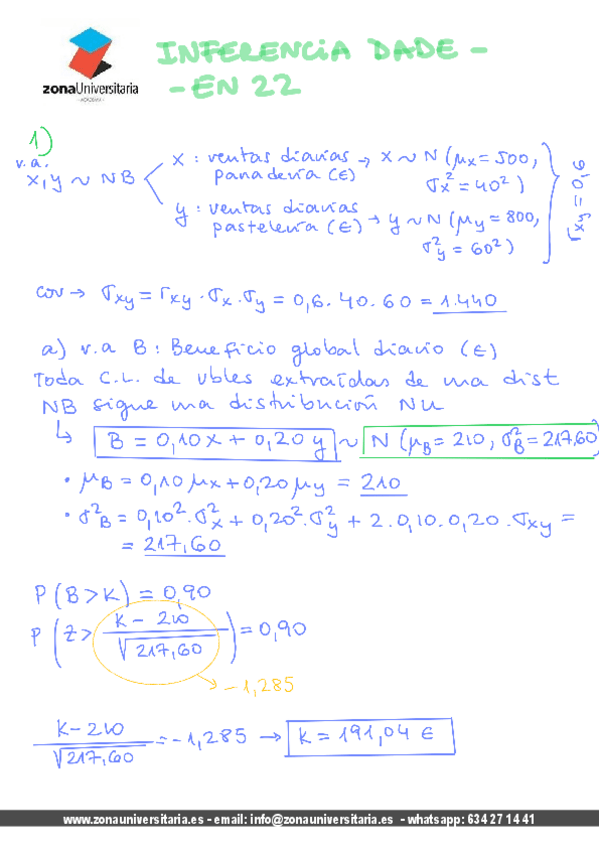 zonaUniversitaria
- ACADEMIA -
INFERENCIA DADE -
- EN 22
1)
v.a.
x,y ~ NB
x : ventas diarias → x ~ N (μx = 500,
panadería (€) σ²x = 40²)
y : ventas diarias → y ~ N (μy = 800,
pastelería (€) σ²y = 60²)
rxy = 0,6
cov → σxy = rxy · σx · σy = 0,6 · 40 · 60 = 1.440
a) v.a B : Beneficio global diario (€)
Toda C.L. de vbles extraídas de una dist
NB sigue una distribución NU
↳ B = 0,10x + 0,20y ~ N (μB = 210, σ²B = 217,60)
• μB = 0,10 μx + 0,20 μy = 210
• σ²B = 0,10² · σ²x + 0,20² · σ²y + 2 · 0,10 · 0,20 · σxy =
= 217,60
P (B > K) = 0,90
P (Z > (K - 210) / √217,60) = 0,90
→ -1,285
(K - 210) / √217,60 = -1,285 → K = 191,04 €
www.zonauniversitaria.es - email: info@zonauniversitaria.es - whatsapp: 634 27 14 41